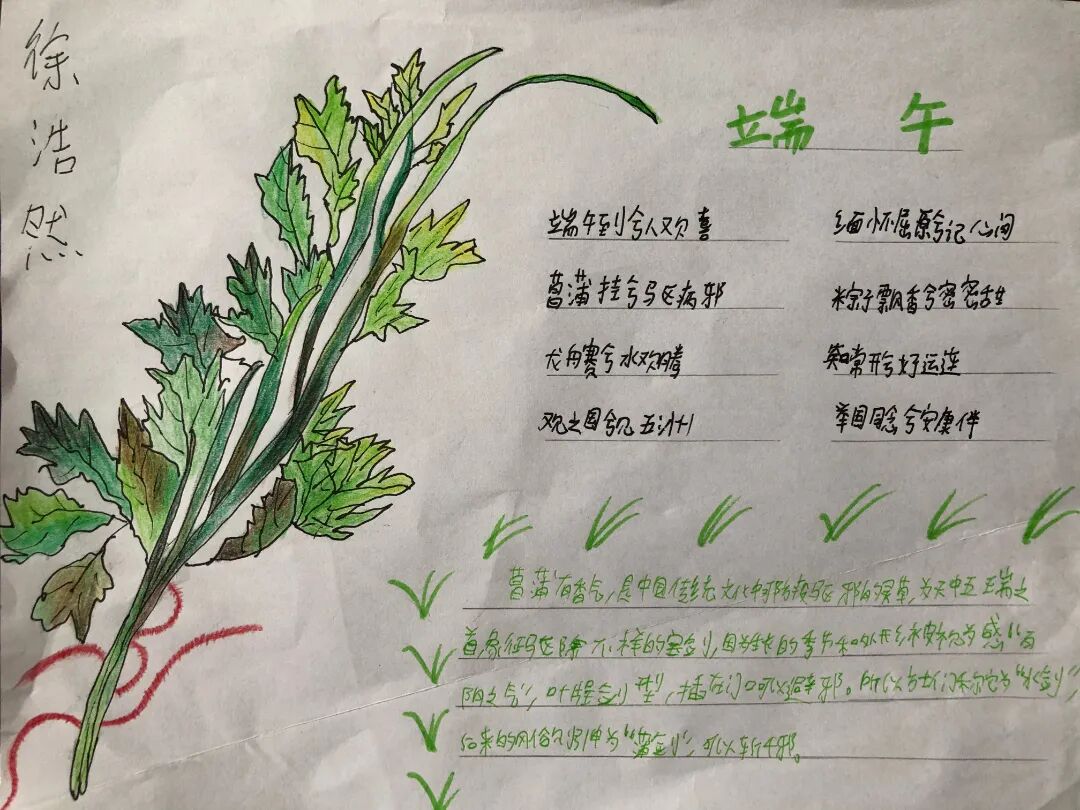 徐浩然
端午
端午到兮人欢喜
缅怀屈原兮记心间
菖蒲挂兮驱病邪
粽子飘香兮密密甜
龙舟赛兮水欢腾
如常形兮好运连
观之国兮兄五洲
举国同念兮安康伴
菖蒲有香气,是中国传统文化中防疫驱邪的灵草,为天中五瑞之
首,象征驱除不祥的宝剑,因为生长的季节和外形被视为感"百
阴之气",叶片呈剑型,插在门口可以避邪。所以方士们称它为"水剑",
后来的风俗则引申为"蒲剑",可以斩千邪。